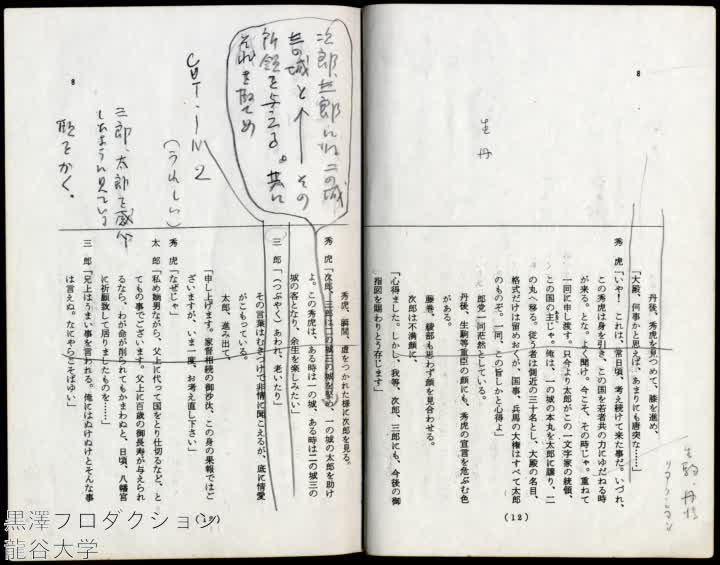 8
生
丹
丹後、秀虎を見つめて、膝を進め、
「大殿、何事かと思えば、あまりにも唐突な……」
秀虎「いや! これは、常日頃、考え続けて来た事だ。いづれ、
この秀虎は身を引き、この国を若者共の力にゆだねる時
が来る。とな。よく聞け。今こそ、その時じゃ。重ねて
一同に申し渡す。只今より太郎がこの一文字家の統領、
この国の主じゃ。俺は、一の城の本丸を太郎に譲り、二
の丸へ移る。従う者は側近の三十名とし、大殿の名目、
格式だけは留めおくが、国事、兵馬の大権はすべて太郎
のものぞ。一同、この旨しかと心得よ」
郎党一同茫然としている。
丹後、生駒等重臣の顔にも、秀虎の宣言を危ぶむ色
がある。
藤巻、綾部も思わず顔を見合わせる。
次郎は不満顔に、
「心得ました。しかし、我等、次郎、三郎にも、今後の御
指図を賜わりとう存じます」
(12)
8
次郎、三郎には二の城
三の城と その
所領を与える。共に
CUT・IN 2
(うれしい)
三郎、太郎を
見ている
秀虎、瞬間、虚をつかれた様に次郎を見る。
秀虎「次郎、三郎は二の城三の城を堅め、一の城の太郎を助け
よ。この秀虎は、ある時は一の城、ある時は二の城三の
城の客となり、余生を楽しみたい」
三郎「(つぶやく)あわれ、老いたり」
その言葉はむきつけで非情に聞こえるが、底に情愛
がこもっている。
太郎、進み出て、
「申し上げます。家督相続の御沙汰、この身の果報ではご
ざいますが、いま一度、お考え直し下さい」
秀虎「なぜじゃ」
太郎「私め嫡男ながら、父上に代って国をとり仕切るなど、と
てもの事でございます。父上に百歳の御長寿が与えられ
るなら、わが命が削られてもかまわぬと、日頃、八幡宮
に祈願致して居りましたものを……」
三郎「兄上はうまい事を言われる。俺にはぬけぬけとそんな事
は言えぬ。なにやらこそばゆい」
(13)
黒澤プロダクション
龍谷大学